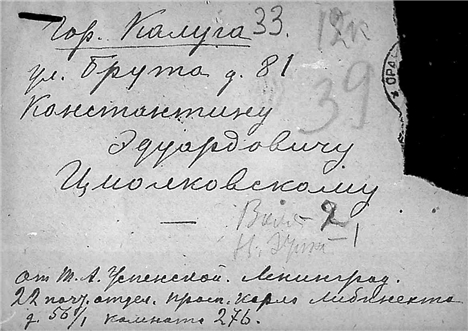 Гор. Калуга 33. 12к
ул. Брута д. 81
39
Константину
Эдуардовичу
Циолковскому
—
2
1
от Т. А. Успенской. Ленинград.
22 почт. отдел. просп. Карла Либкнехта
д. 56/1 комната 276.
ОРА